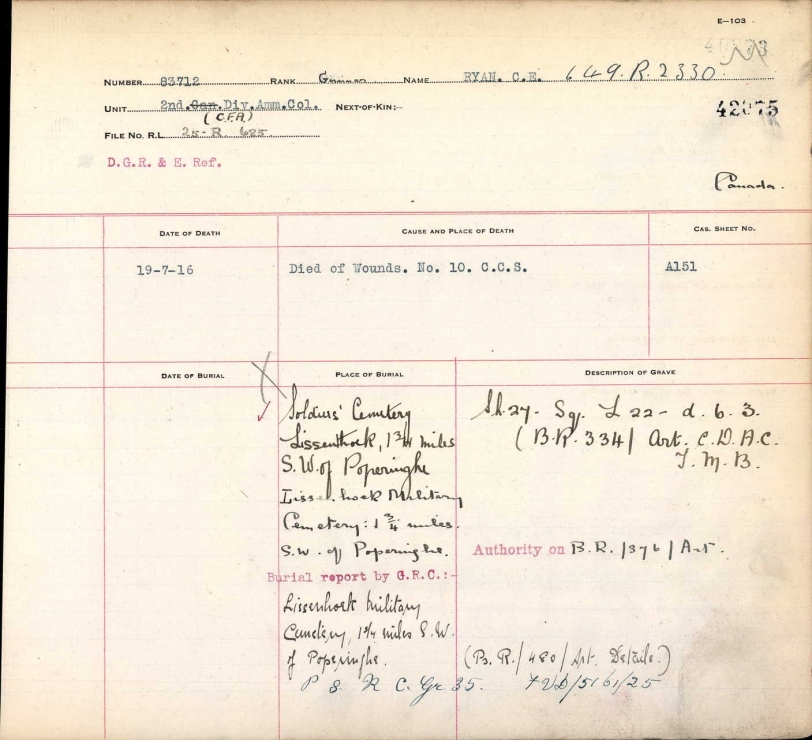 E-103
NUMBER 83712 RANK Gunner NAME RYAN. C.E. 649.R.2330.
UNIT 2nd. Can. Div. Amm. Col. NEXT-OF-KIN:-
(C.F.A)
42075
FILE NO. R.L. 25-R. 625
D.G.R. & E. Ref.
Canada.
DATE OF DEATH CAUSE AND PLACE OF DEATH CAS. SHEET NO.
19-7-16 Died of Wounds. No. 10. C.C.S. A151
DATE OF BURIAL PLACE OF BURIAL DESCRIPTION OF GRAVE
Soldiers' Cemetery Sh.27- Sq. L 22- d. 6. 3.
Lissenthoek, 1 3/4 miles (B.R. 334/ Art. C.D.A.C.
S.W. of Poperinghe T.M.B.
Lissenhoek Military
Cemetery: 1 3/4 miles.
S.W. of Poperinghe. Authority on B.R. /376/ Art.
Burial report by G.R.C.:-
Lissenhoek Military
Cemetery, 1 3/4 miles S.W.
of Poperinghe. (B. R./480/Art.
P 8. R C. Gr 35.